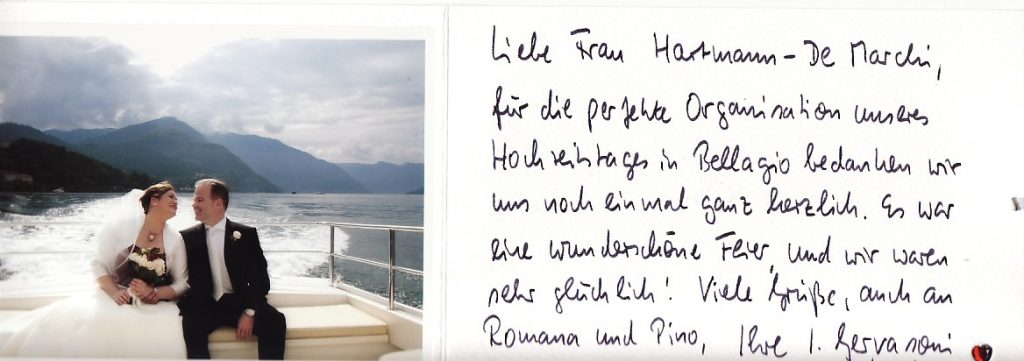 Liebe Frau Hartmann-De Marchi,
für die perfekte Organisation unseres
Hochzeitstages in Bellagio bedanken wir
uns noch einmal ganz herzlich. Es war
eine wunderschöne Feier, und wir waren
sehr glücklich! Viele Grüße, auch an
Romana und Pino, Ihre I. Gervasoni